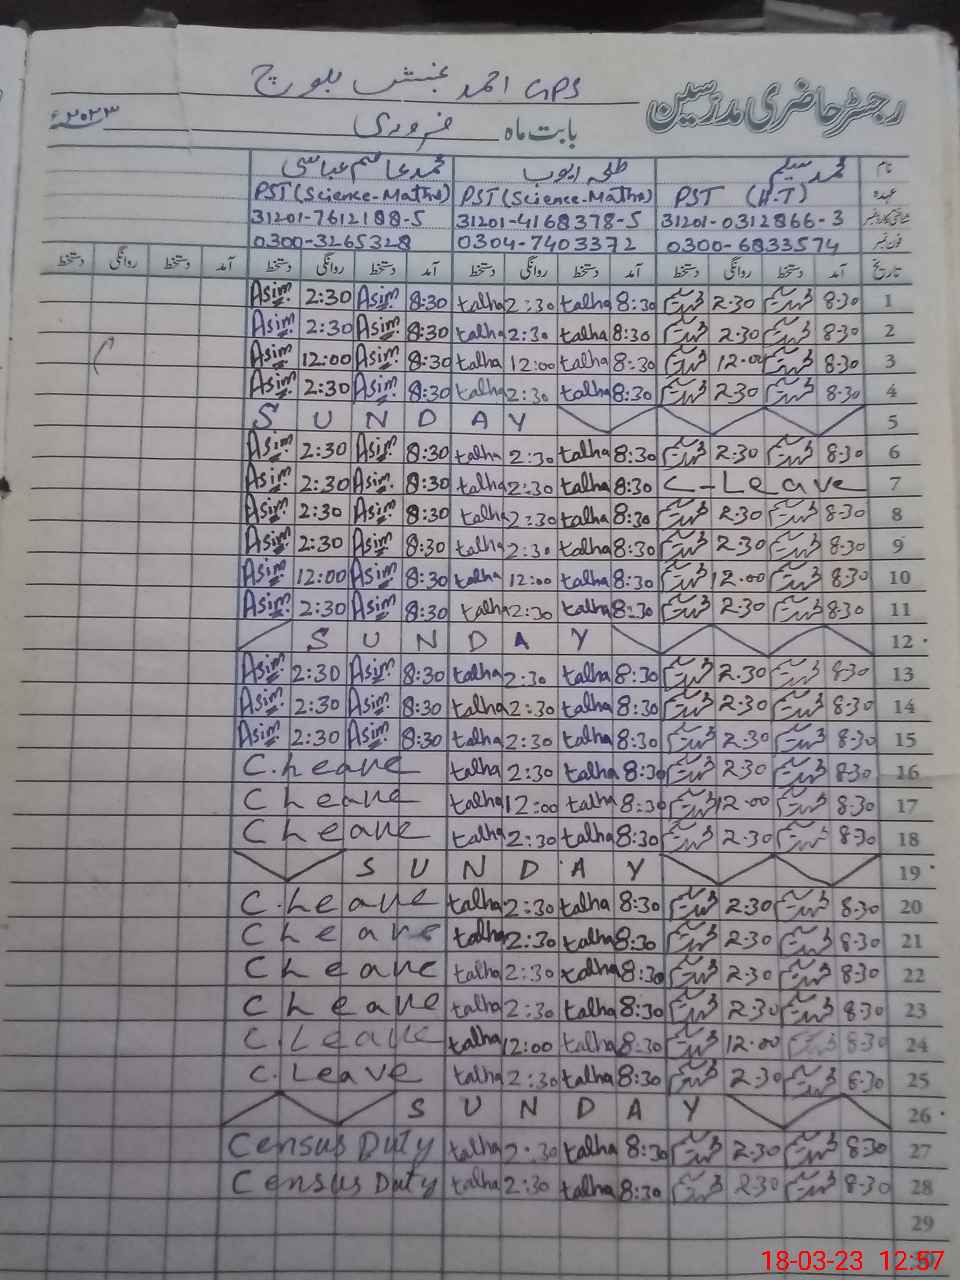 GPS احمد بخش بلوچ
رجسٹر حاضری مدرسین
بابت ماہ فروری ۲۰۲۳ء
نام محمد سلیم طلحہ ایوب محمد عاصم عباسی
عہدہ PST (H.T) PST (Science-Maths) PST (Science-Maths)
شناختی کارڈ نمبر 31201-0312866-3 31201-4168378-5 31201-7612188-5
فون نمبر 0300-6833574 0304-7403372 0300-3265328
تاریخ آمد دستخط روانگی دستخط آمد دستخط روانگی دستخط آمد دستخط روانگی دستخط آمد دستخط روانگی دستخط
1 8:30 2:30 8:30 talha 2:30 talha 8:30 Asim 2:30 Asim
2 8:30 2:30 8:30 talha 2:30 talha 8:30 Asim 2:30 Asim
3 8:30 12:00 8:30 talha 12:00 talha 8:30 Asim 12:00 Asim
4 8:30 2:30 8:30 talha 2:30 talha 8:30 Asim 2:30 Asim
5 SUNDAY
6 8:30 2:30 8:30 talha 2:30 talha 8:30 Asim 2:30 Asim
7 C-Leave 8:30 talha 2:30 talha 8:30 Asim 2:30 Asim
8 8:30 2:30 8:30 talha 2:30 talha 8:30 Asim 2:30 Asim
9 8:30 2:30 8:30 talha 2:30 talha 8:30 Asim 2:30 Asim
10 8:30 12:00 8:30 talha 12:00 talha 8:30 Asim 12:00 Asim
11 8:30 2:30 8:30 talha 2:30 talha 8:30 Asim 2:30 Asim
12 SUNDAY
13 8:30 2:30 8:30 talha 2:30 talha 8:30 Asim 2:30 Asim
14 8:30 2:30 8:30 talha 2:30 talha 8:30 Asim 2:30 Asim
15 8:30 2:30 8:30 talha 2:30 talha 8:30 Asim 2:30 Asim
16 8:30 2:30 8:30 talha 2:30 talha C.Leave
17 8:30 12:00 8:30 talha 12:00 talha C Leave
18 8:30 2:30 8:30 talha 2:30 talha C Leave
19 SUNDAY
20 8:30 2:30 8:30 talha 2:30 talha C.Leave
21 8:30 2:30 8:30 talha 2:30 talha C Leave
22 8:30 2:30 8:30 talha 2:30 talha C Leave
23 8:30 2:30 8:30 talha 2:30 talha C Leave
24 8:30 12:00 8:30 talha 12:00 talha C.Leave
25 8:30 2:30 8:30 talha 2:30 talha C.Leave
26 SUNDAY
27 8:30 2:30 8:30 talha 2:30 talha Census Duty
28 8:30 2:30 8:30 talha 2:30 talha Census Duty
29
18-03-23 12:57